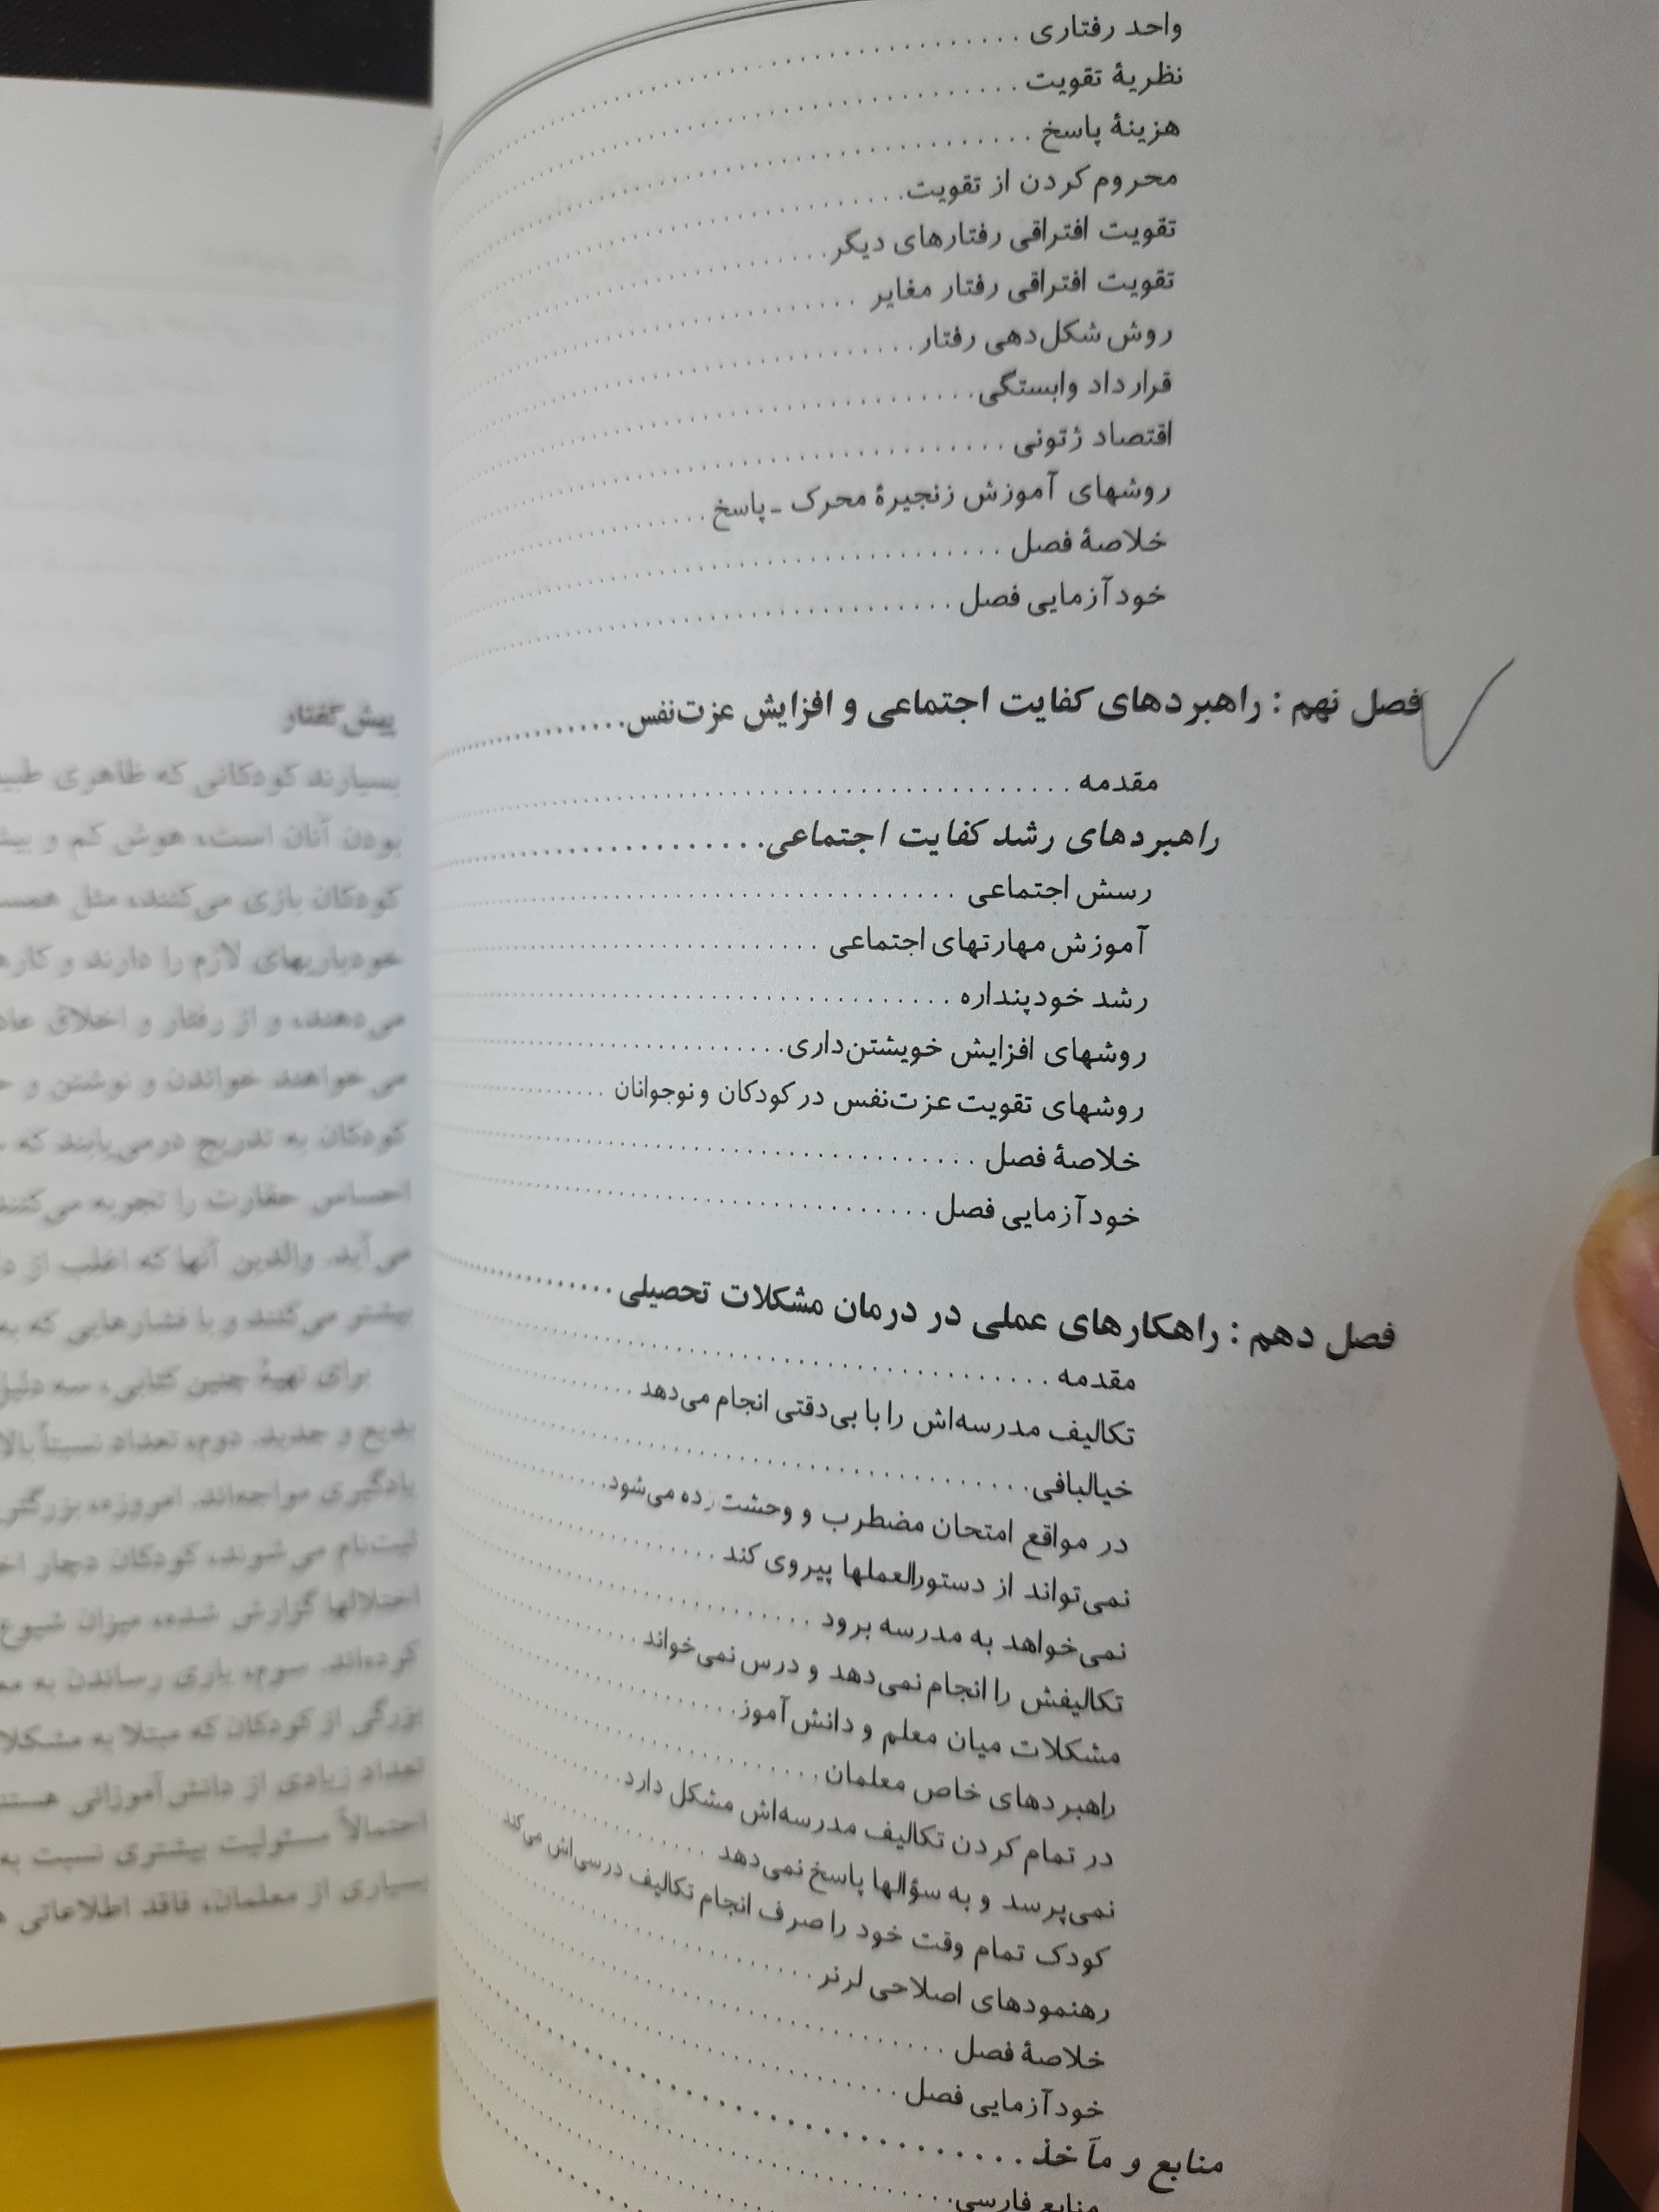 واحد رفتاری
نظریهٔ تقویت
هزینهٔ پاسخ
محروم کردن از تقویت
تقویت افتراقی رفتارهای دیگر
تقویت افتراقی رفتار مغایر
روش شکل‌دهی رفتار
قرارداد وابستگی
اقتصاد ژتونی
روشهای آموزش زنجیرهٔ محرک ـ پاسخ
خلاصهٔ فصل
خودآزمایی فصل
فصل نهم : راهبردهای کفایت اجتماعی و افزایش عزت‌نفس
مقدمه
راهبردهای رشد کفایت اجتماعی
رسش اجتماعی
آموزش مهارتهای اجتماعی
رشد خودپنداره
روشهای افزایش خویشتن‌داری
روشهای تقویت عزت‌نفس در کودکان و نوجوانان
خلاصهٔ فصل
خودآزمایی فصل
فصل دهم : راهکارهای عملی در درمان مشکلات تحصیلی
مقدمه
تکالیف مدرسه‌اش را با بی‌دقتی انجام می‌دهد
خیالبافی
در مواقع امتحان مضطرب و وحشت زده می‌شود
نمی‌تواند از دستورالعملها پیروی کند
نمی‌خواهد به مدرسه برود
تکالیفش را انجام نمی‌دهد و درس نمی‌خواند
مشکلات میان معلم و دانش‌آموز
راهبردهای خاص معلمان
در تمام کردن تکالیف مدرسه‌اش مشکل دارد
نمی‌پرسد و به سؤالها پاسخ نمی‌دهد
کودک تمام وقت خود را صرف انجام تکالیف درسی‌اش می‌کند
رهنمودهای اصلاحی لرنر
خلاصهٔ فصل
خودآزمایی فصل
منابع و مآخذ
منابع فارسی
پیش‌گفتار
بسیارند کودکانی که ظاهری
بودن آنان است، هوش کم و
کودکان بازی می‌کنند، مثل
خودیاریهای لازم را دارند و
می‌دهند، و از رفتار و اخلاق
می‌خواهند خواندن و نوشتن و
کودکان به تدریج درمی‌یابند که
احساس حقارت را تجربه می‌کنند
می‌آید. والدین آنها که اغلب از
بیشتر می‌کنند و با فشارهایی که
برای تهیهٔ چنین کتابی، سه دلیل
بدیع و جدید. دوم، تعداد نسبتاً
یادگیری مواجه‌اند. امروزه،
ثبت‌نام می‌شوند، کودکان دچار
اختلالها گزارش شده، میزان شیوع
کرده‌اند. سوم، یاری رساندن به
بزرگی از کودکان که مبتلا به
تعداد زیادی از دانش‌آموزانی
احتمالاً مسئولیت بیشتری نسبت به
بسیاری از معلمان، فاقد اطلاعاتی